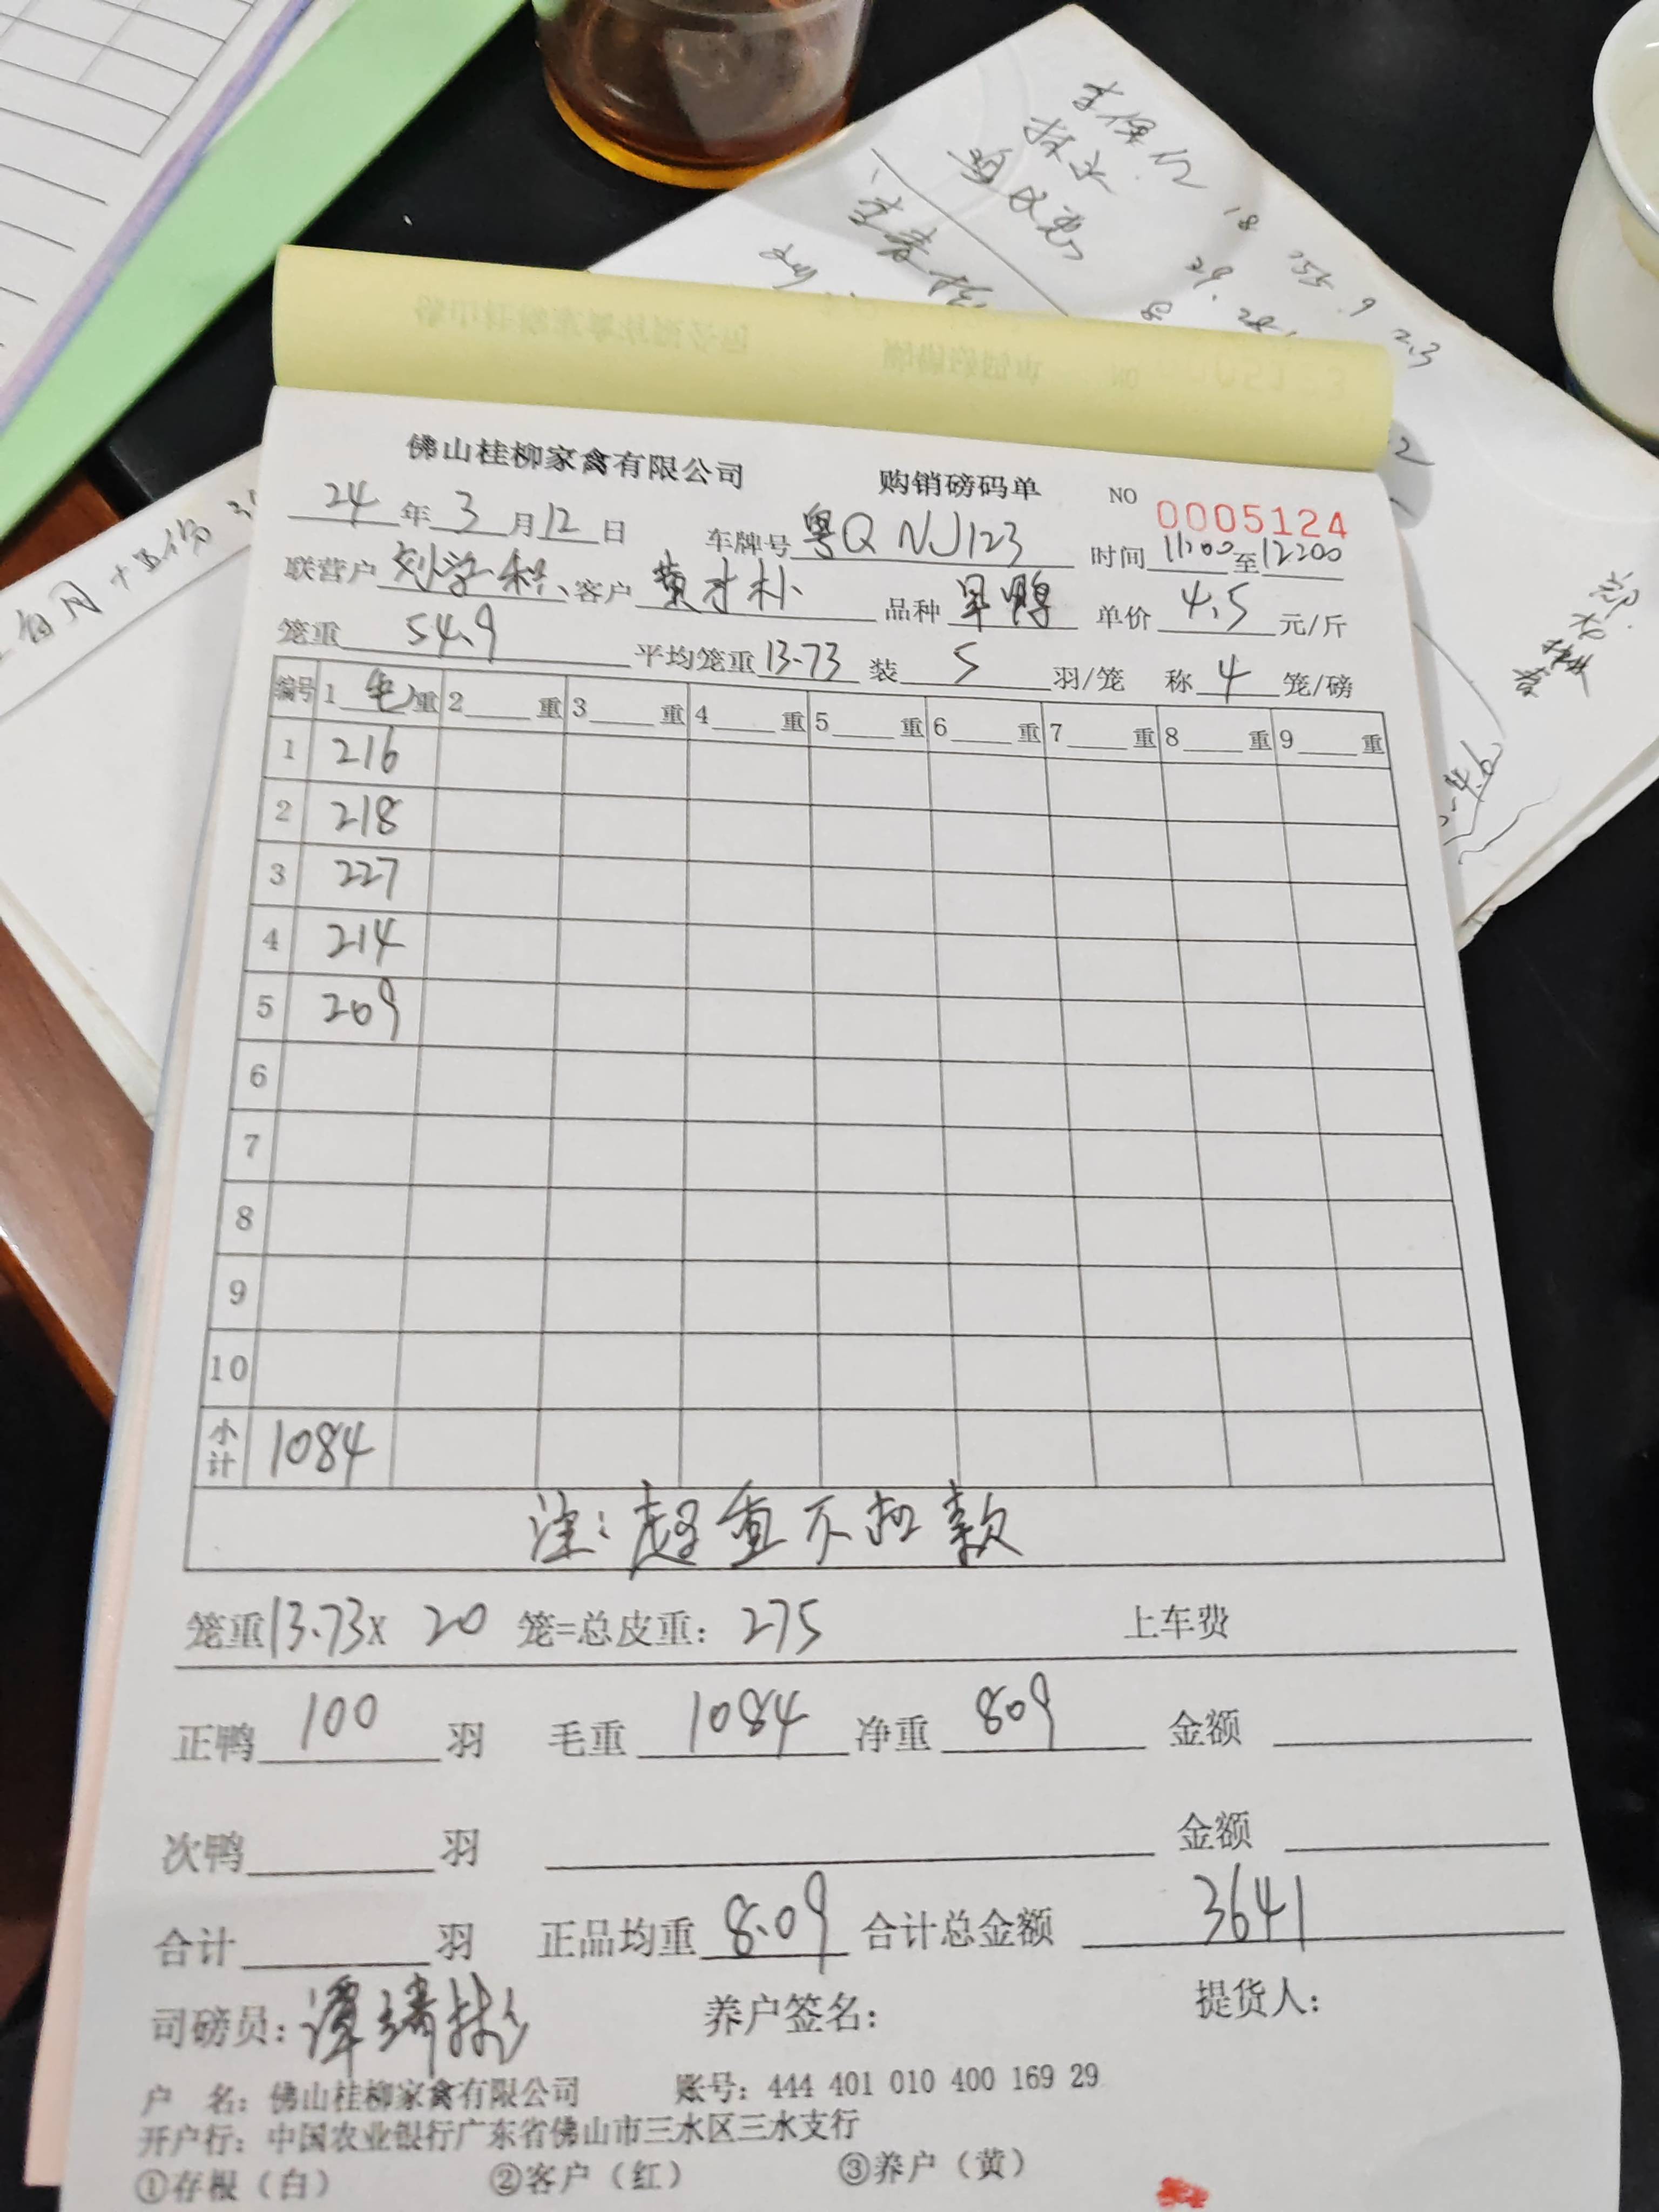 佛山桂柳家禽有限公司 购销磅码单 NO 0005124
24年3月12日 车牌号 粤Q NJ123 时间 11:00至12:00
联营户 客户 黄才朴 品种 旱鸭 单价 4.5 元/斤
笼重 54.9 平均笼重 13.73 装 5 羽/笼 称 4 笼/磅
编号 1 毛 重 2 重 3 重 4 重 5 重 6 重 7 重 8 重 9 重
1 216
2 218
3 227
4 214
5 209
6
7
8
9
10
小计 1084
注:超重不扣款
笼重 13.73 x 20 笼=总皮重: 275 上车费
正鸭 100 羽 毛重 1084 净重 809 金额
次鸭 羽 金额
合计 羽 正品均重 8.09 合计总金额 3641
司磅员: 养户签名: 提货人:
户 名: 佛山桂柳家禽有限公司 账号: 444 401 010 400 169 29
开户行: 中国农业银行广东省佛山市三水区三水支行
①存根(白) ②客户(红) ③养户(黄)